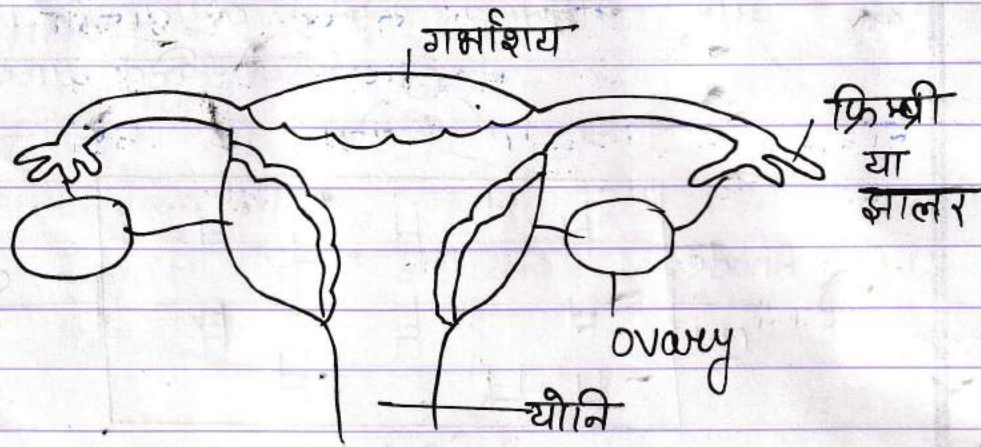 गर्भाशय
फ्रिम्ब्री
या
झालर
ovary
योनि